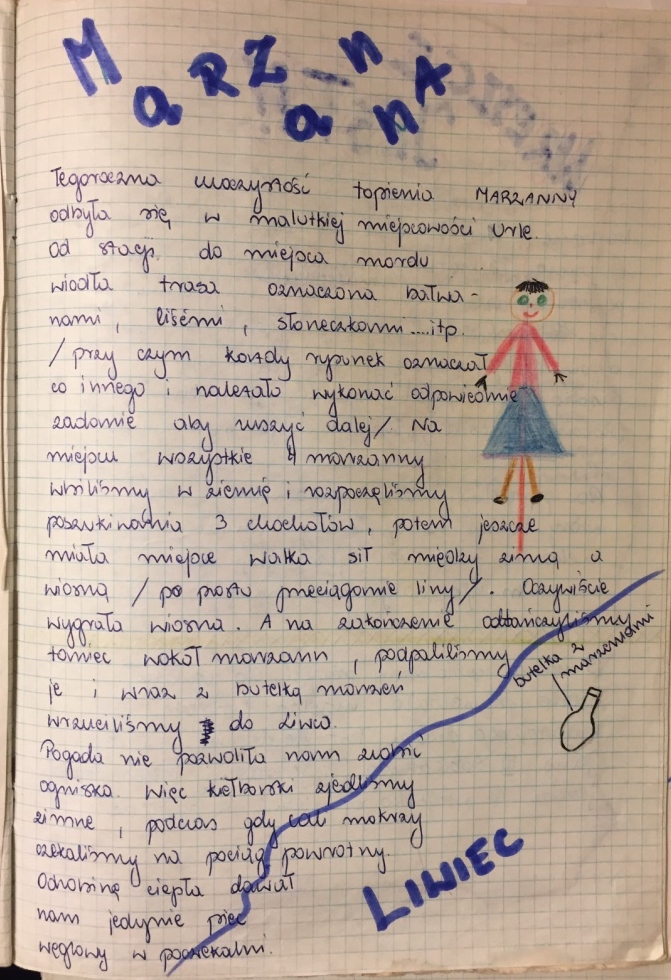 MaRZannA
Tegoroczna uroczystość topienia MARZANNY
odbyła się w malutkiej miejscowości Urle.
Od stacji do miejsca mordu
wiodła trasa oznaczona bałwa-
nami, liśćmi, słoneczkami....itp.
/przy czym każdy rysunek oznaczał
co innego i należało wykonać odpowiednie
zadanie aby ruszyć dalej/ Na
miejscu wszystkie 4 marzanny
wbiliśmy w ziemię i rozpoczęliśmy
poszukiwania 3 chochołów, potem jeszcze
miała miejsce walka sił między zimą a
wiosną /po prostu przeciąganie liny/. Oczywiście
wygrała wiosna. A na zakończenie odtańczyliśmy
taniec wokół marzann, podpaliliśmy
je i wraz z butelką marzeń
wrzuciliśmy do Liwca.
butelka z
marzeniami
Pogoda nie pozwoliła nam zrobić
ogniska. Więc kiełbaski zjedliśmy
zimne, podczas gdy cali mokrzy
czekaliśmy na pociąg powrotny.
Odrobinę ciepła dawał
nam jedynie piec
węglowy w poczekalni.
LIWIEC